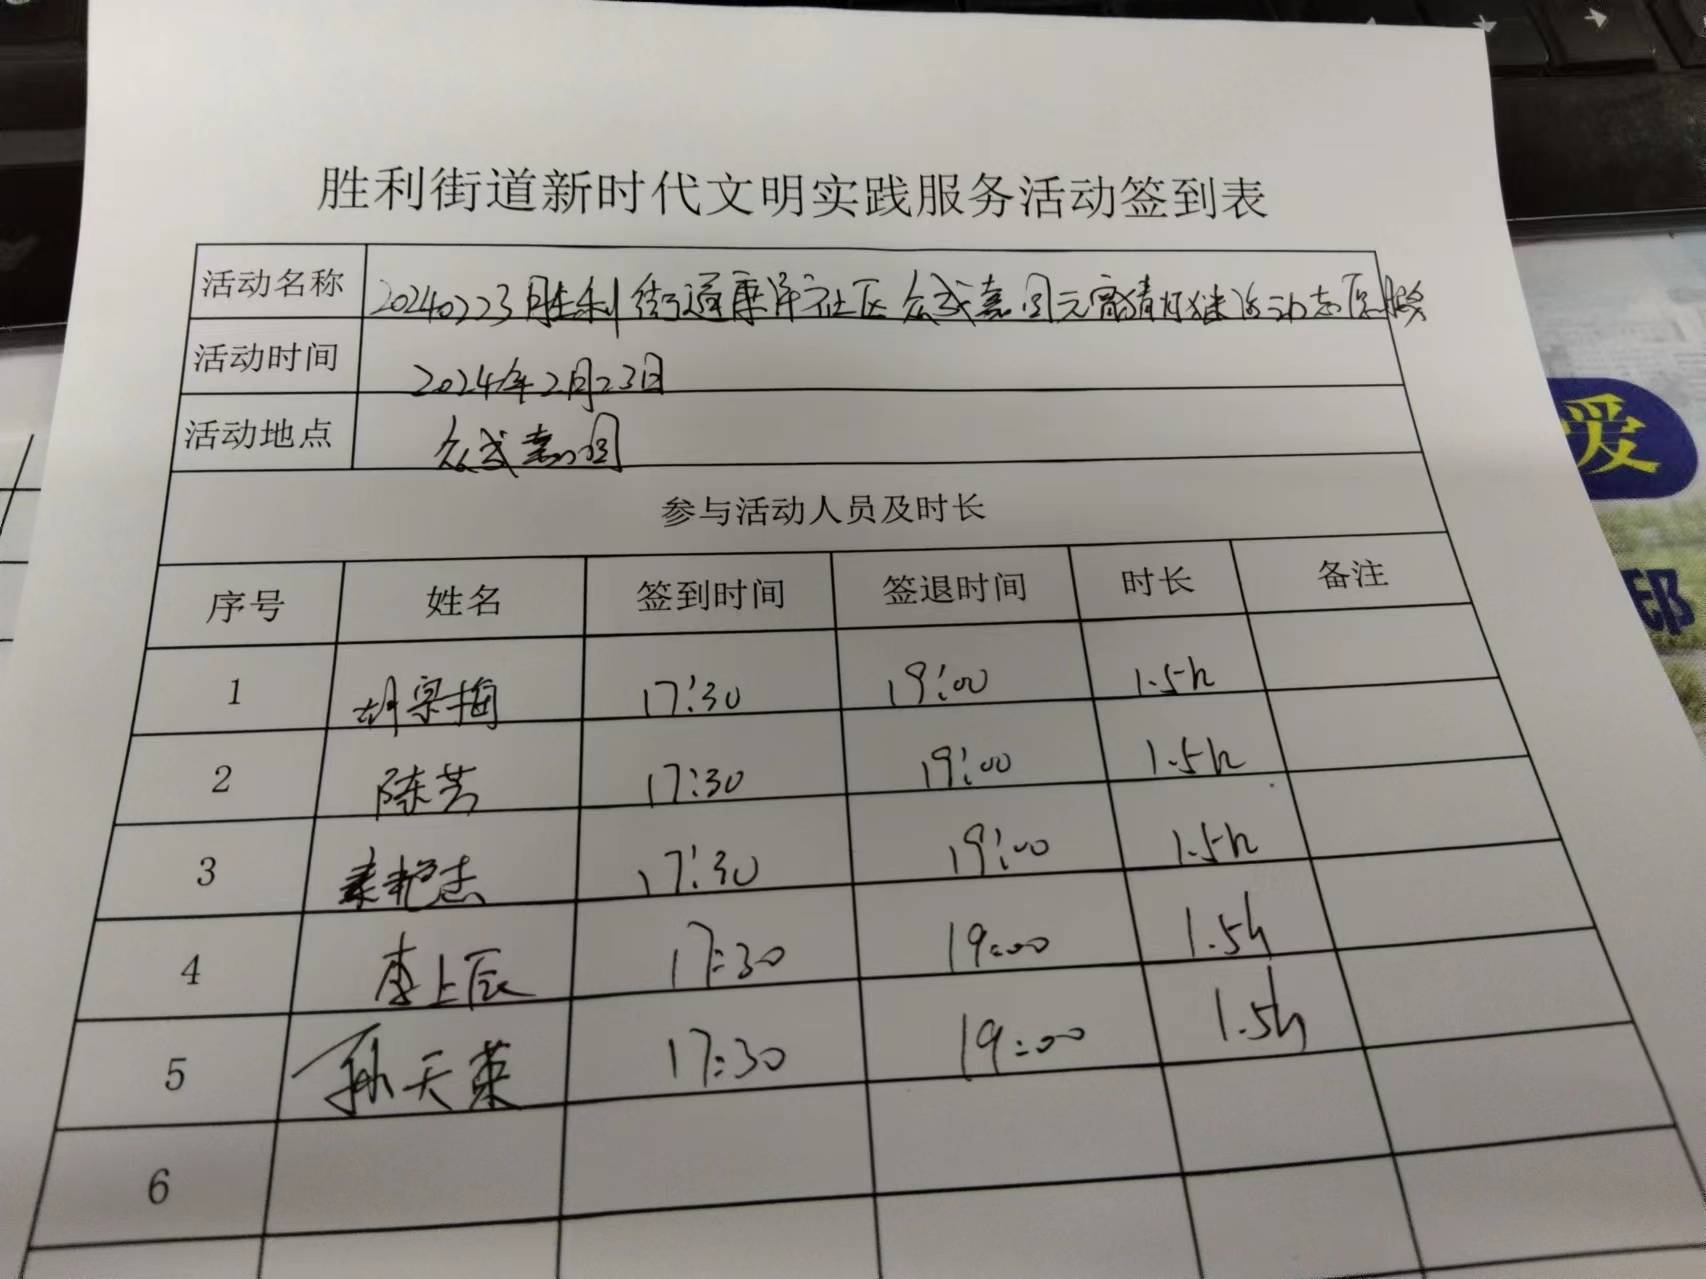 胜利街道新时代文明实践服务活动签到表
活动名称 20240223胜利街道康洋社区众成嘉园元宵猜灯谜活动志愿服务
活动时间 2024年2月23日
活动地点 众成嘉园
参与活动人员及时长
序号 姓名 签到时间 签退时间 时长 备注
1 胡宗梅 17:30 19:00 1.5h
2 陈芳 17:30 19:00 1.5h
3 17:30 19:00 1.5h
4 李上辰 17:30 19:00 1.5h
5 孙天荣 17:30 19:00 1.5h
6
爱
邸